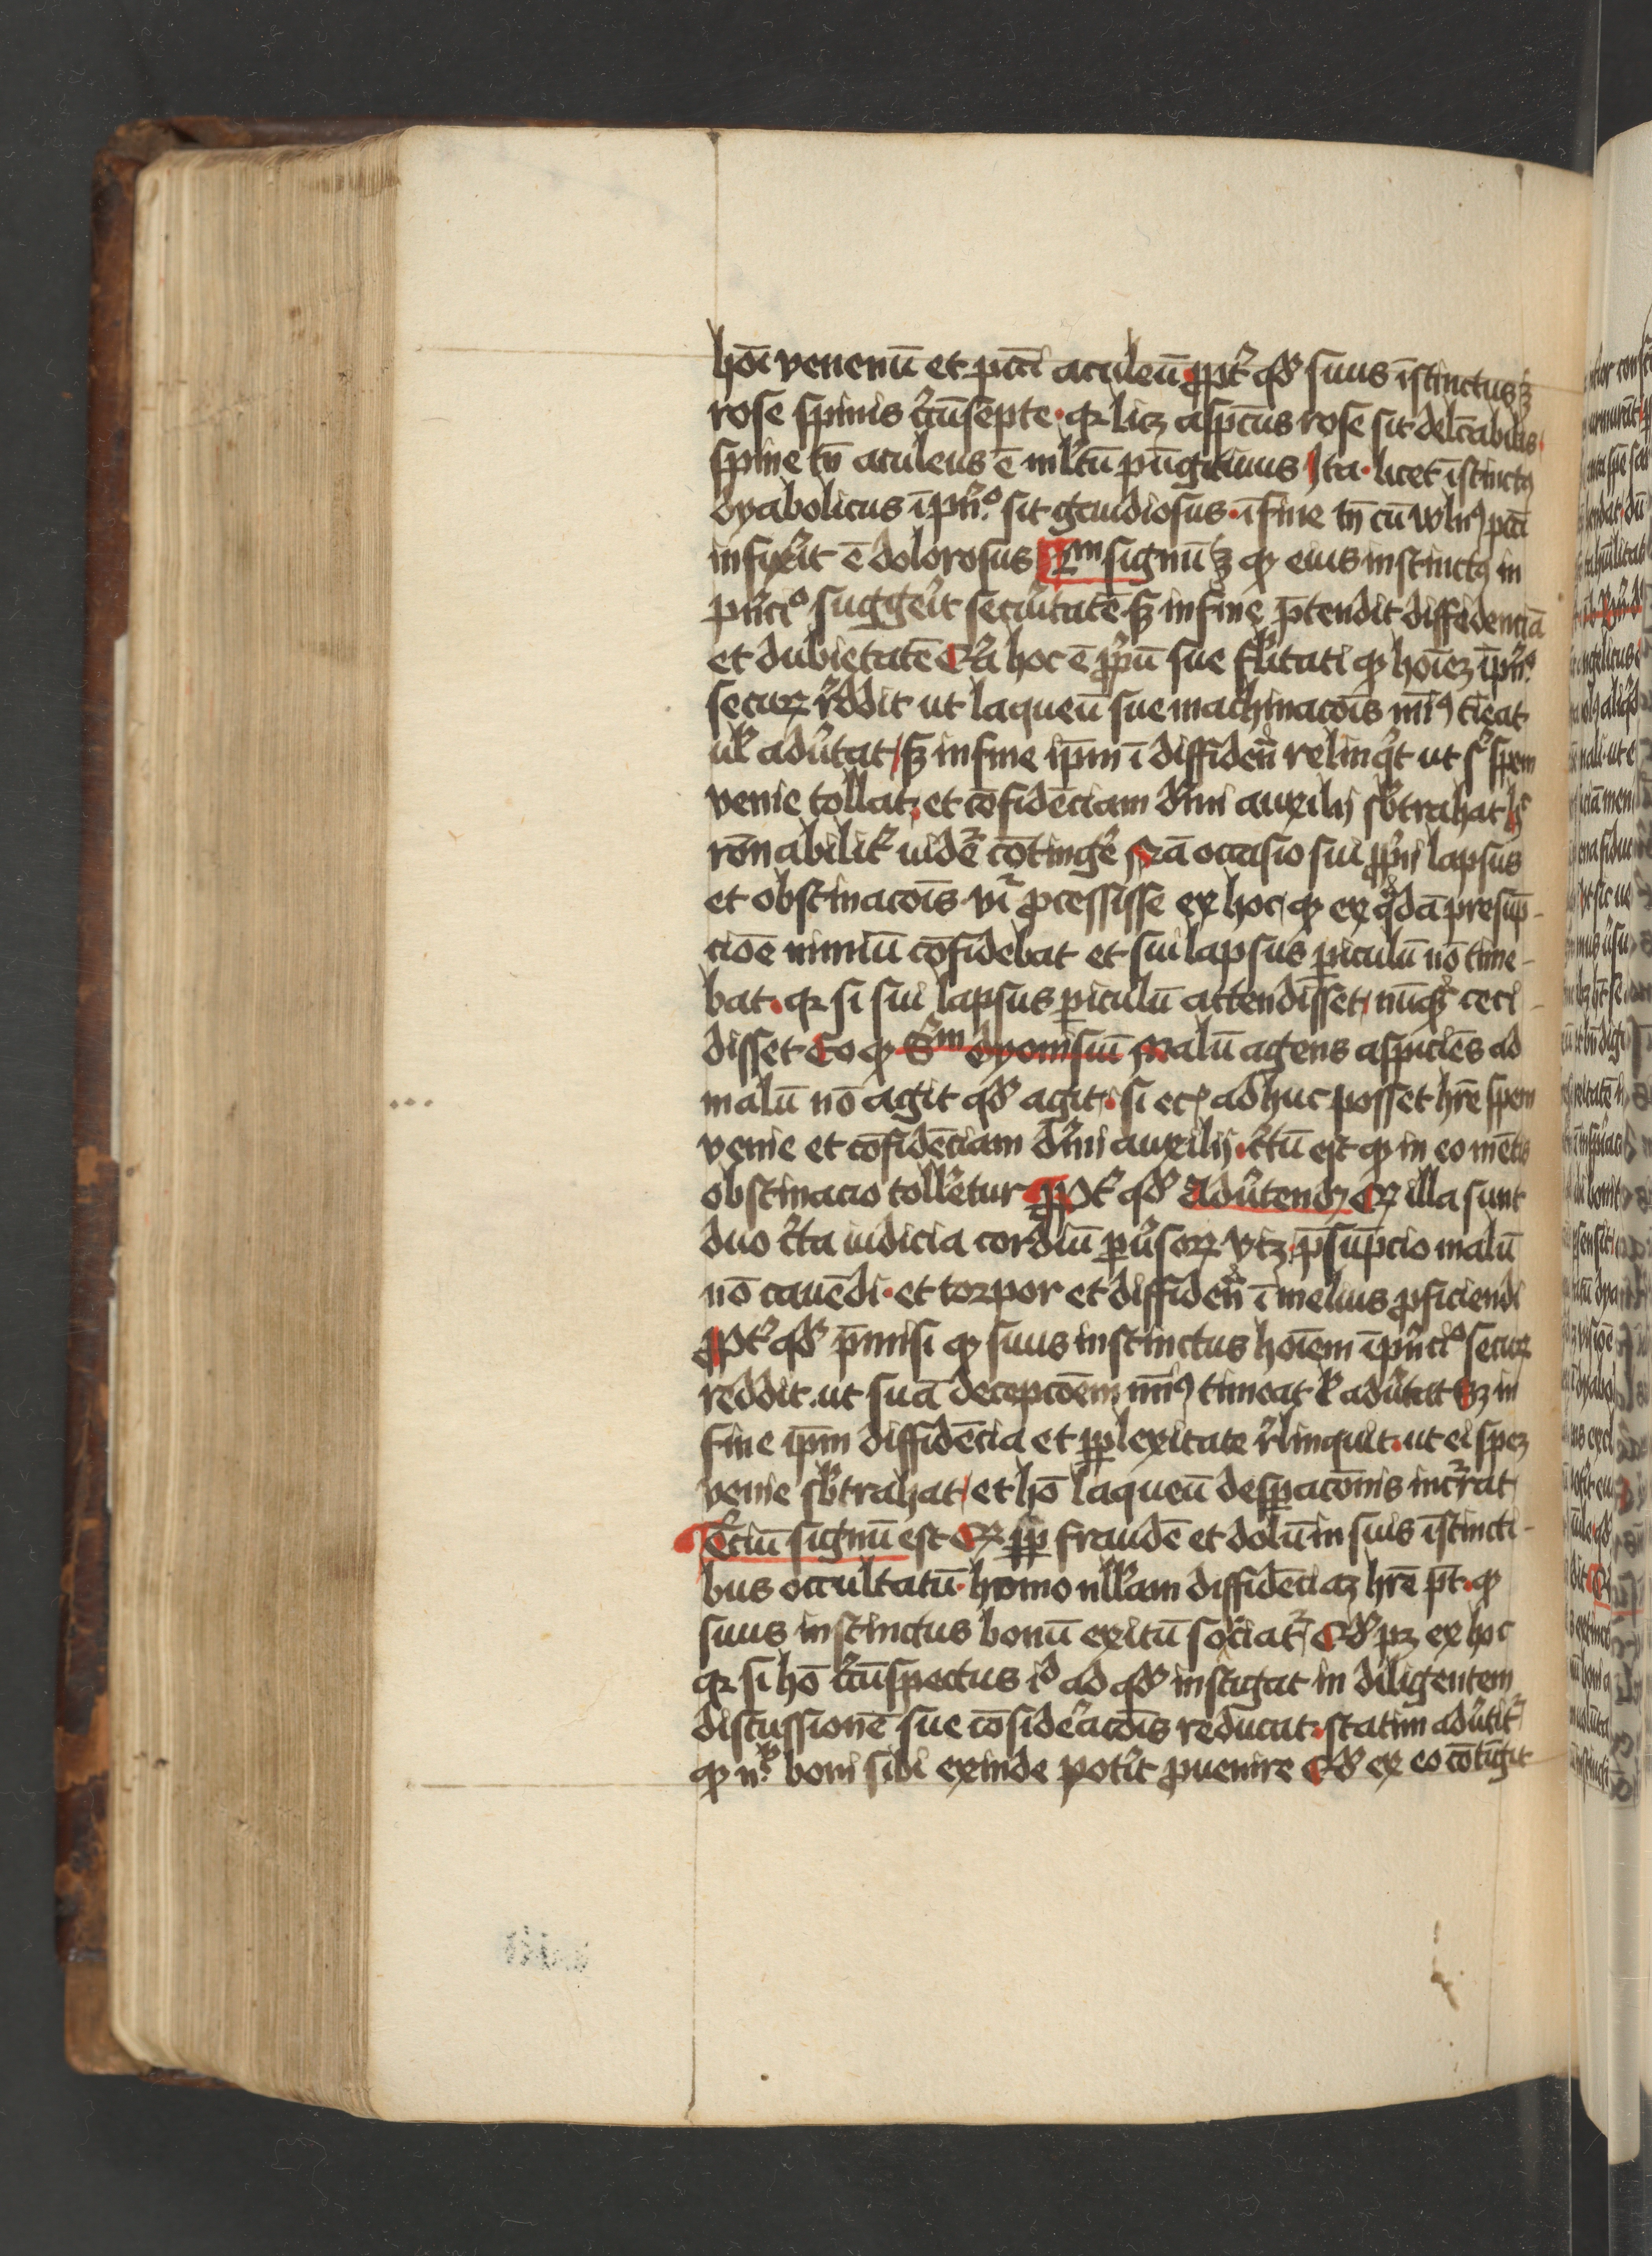 hōi venenū et pctī aculeū ꝓpt̄ qd̄ suus īstinctus ꝫ
rose spinis c̄cūsepte · qr licꝫ aspectus rose sit delc̄abilis ·
spine tn̄ aculeus ē ml̄tū pūgitiuus Ita · licet īstinctꝯ
dyabolicus ī pn̄o sit gaudiosus · ī fine tn̄ cū pctī
infixīt ē dolorosus 2m signū ꝫ qꝫ eius instinctꝯ in
pn̄cio suggerit securitatē sꝫ in fine p̄tendit diffidenciā
et dubietatē Qꝛ hoc ē ꝓpū sue qꝫ hoīeꝫ ī pn̄o
secuꝝ reddit ut laqueū sue machinacōis mīꝯ tīeat
ul̄ adūtat / sꝫ in fine ip̄m ī diffidēn relinq̄t ut sꝫ spem
venie tollat · et cōfidēciam dīni auxilij sb̄trahat
rōnabilit̄ uidēt cōtinḡe Nā occasio sui ꝓprij lapsus
et obstinacōis vr̄ ꝓcessisse ex hoc / qꝫ ex qadā presūp-
cioē nimiū cōfidebat et sui lapsus ꝑiculū nō time-
bat · qr si sui lapsus ꝑiculū attendisset / nūqꝫ ceci-
disset Eo qꝫ Sm dyonisiū Malū agens aspiciēs ad
malū nō agit qd̄ agit · si adhuc posset hr̄e spem
venie et cōfidēciam dīni auxilij · c̄tū est qꝫ in eo mētis
obstinacio tollēetur Ꝓpt̄ qd̄ Adūtendꝫ Qꝫ illa sunt
duo c̄ta iudicia cordiū ꝑūsoꝝ vꝫ · p̄sūpcio malū
nō cauēdi · et torpor et diffidēn ī melius ꝓficiendi
Ꝓpt̄ qd̄ p̄misi qꝫ suus instinctus hoīem ī pn̄cio secuꝝ
reddit · ut suā decepcōem mīꝯ timeat ul̄ adūtat Sꝫ in
fine ip̄m diffidēcia et ꝑplexitate relinquit · ut ei speꝫ
venie sb̄trahat / et hō laqueū desꝑacōnis incīrat
Terciū signū est Qꝫ ꝓp fraudē et dolū in suis īstincti-
bus occultatū · homo nll̄am diffidēciaꝫ hr̄e p̄t · qꝫ
suus instinctus bonū exitū sociat̄ / Qd̄ pꝫ ex hoc
qr si hō c̄cūspectus id ad qd̄ instigat in diligentem
discussionē sue cōsidēacōis reducat · statim adūtit̄
qꝫ nl̄ boni sibi exinde potīt ꝓuenire Qd̄ ex eo cōtīgit